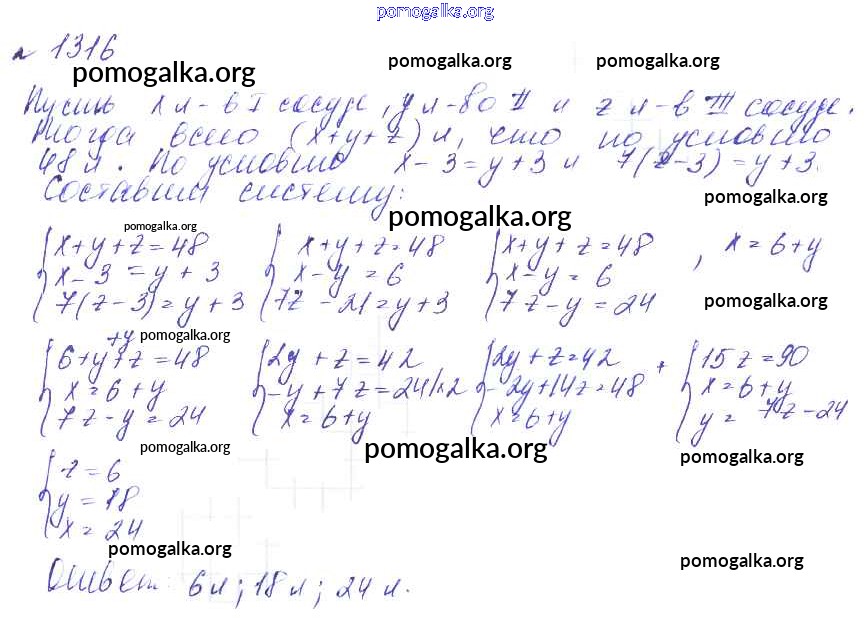 pomogalka.org
№ 1316
pomogalka.org
pomogalka.org
pomogalka.org
Пусть x л - в I сосуде, y л - во II и z л - в III сосуде.
Тогда всего (x+y+z) л, что по условию
48 л. По условию x - 3 = y + 3 и 7(z-3) = y + 3.
Составим систему:
pomogalka.org
pomogalka.org
pomogalka.org
{ x+y+z=48 { x+y+z=48 { x+y+z=48 , x = 6+y
x-3 = y+3 x-y=6 x-y=6
7(z-3)=y+3 7z-21=y+3 7z-y=24
pomogalka.org
pomogalka.org
+y
{ 6+y+z=48 { 2y+z=42 { 2y+z=42 + { 15z=90
x=6+y -y+7z=24|×2 -2y+14z=48 x=6+y
7z-y=24 x=6+y x=6+y y=7z-24
pomogalka.org
pomogalka.org
pomogalka.org
{ z=6
y=18
x=24
pomogalka.org
pomogalka.org
Ответ: 6л; 18л; 24л.